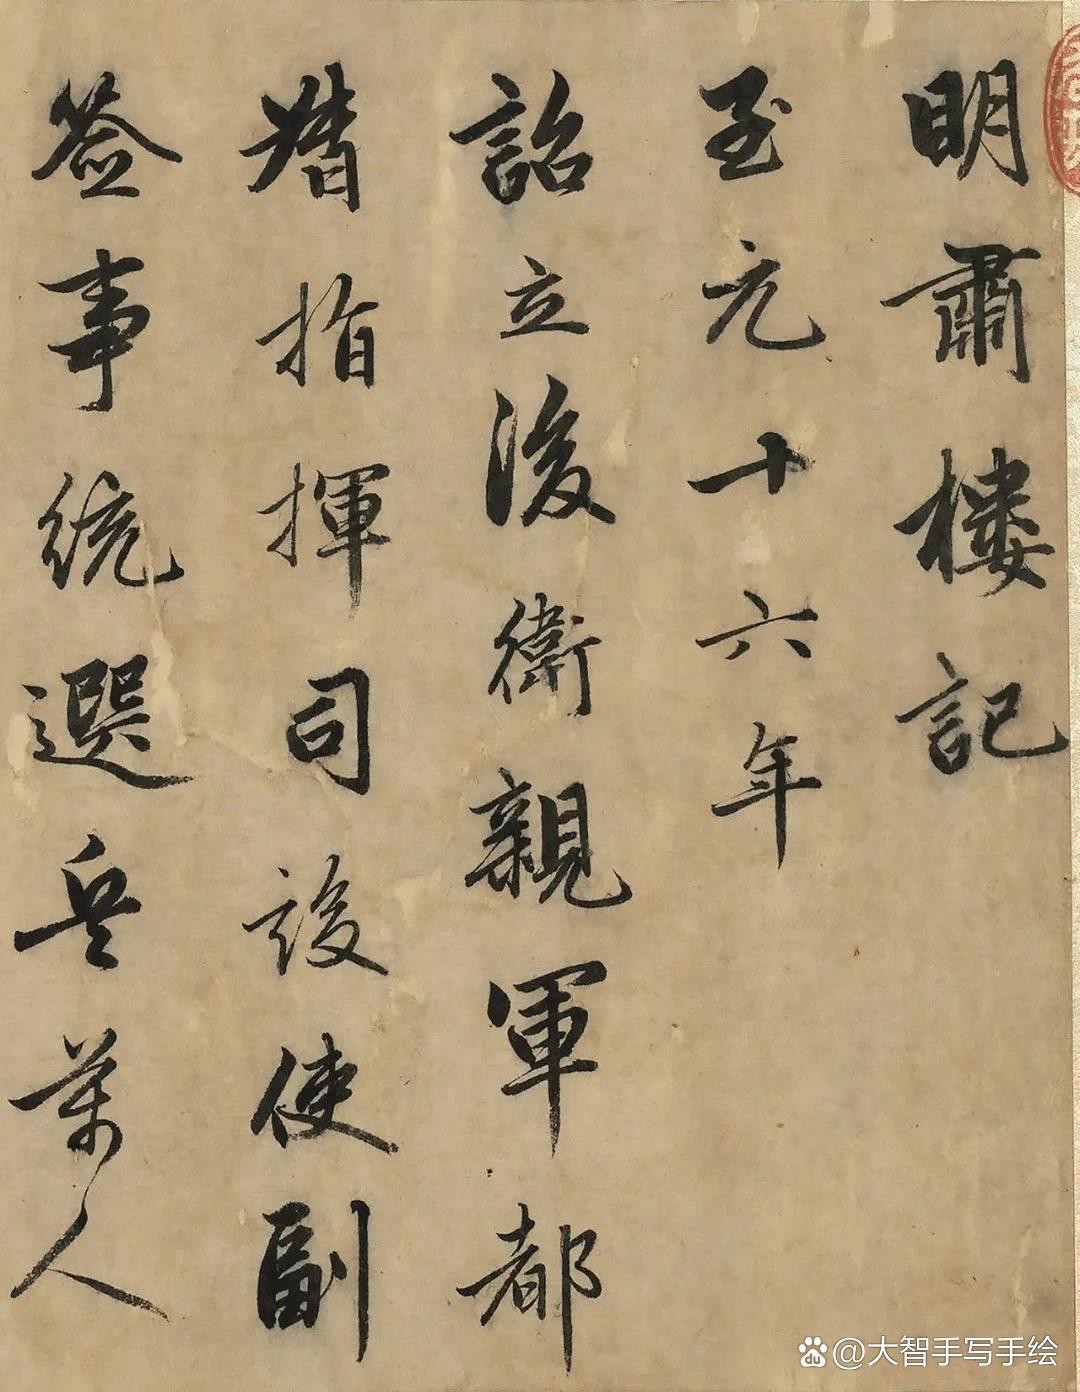 明肅樓記
至元十六年
詔立後衛親軍都
指揮司設使副
簽事統選兵萬人
大智手写手绘